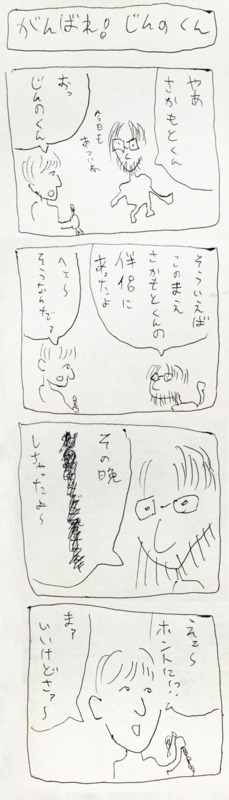 がんばれ！じんのくん
やあ
さかもとくん
今日も
あついね
おっ
じんのくん
そういえば
このまえ
さかもとくんの
伴侶に
あったよ
へェ～
そうなんだ？
その晩
しちゃったよ～
えェ～
ホントにィ？
まァ
いいけどさァ～